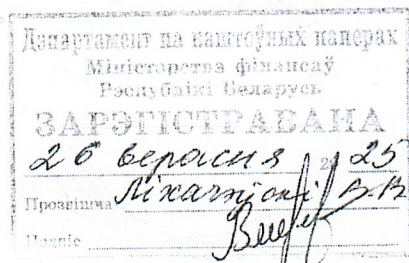 Дэпартамент па каштоўных паперах
Міністэрства фінансаў
Рэспублікі Беларусь
ЗАРЭГІСТРАВАНА
26 верасня 2025
Прозвішча
Подпіс